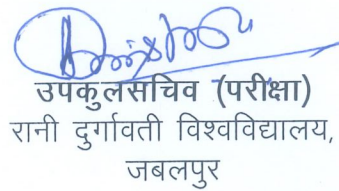 उपकुलसचिव (परीक्षा)
रानी दुर्गावती विश्वविद्यालय,
जबलपुर